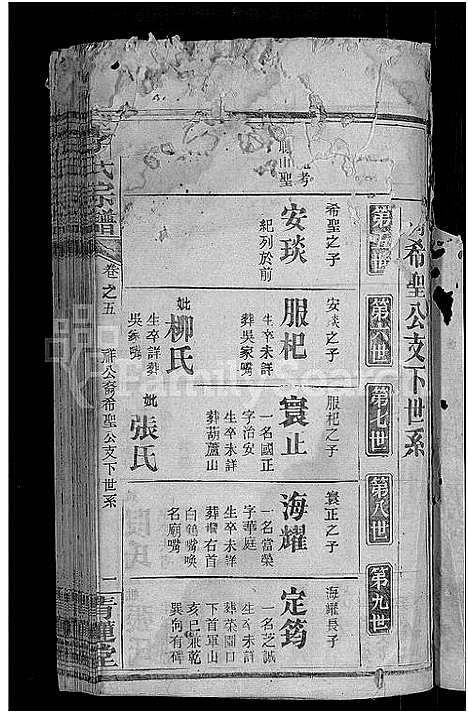 希聖公支下世系
第五世
第六世
第七世
第八世
第九世
希聖之子
安琰
紀列於前
安琰之子
服杞
生卒未詳
葬吳家嘴
妣柳氏
生卒詳葬
吳家嘴
服杞之子
寰正
一名國正
字治安
生卒未詳
葬葫蘆山
妣張氏
寰正之子
海耀
一名當榮
字華庭
生卒未詳
葬壪右首
白鶴嘴喚
名廟嘴
海耀長子
定筠
一名芝誠
生卒未詳
葬菜園口
下首軍山
亥巳兼乾
巽向有碑
氏宗譜
卷之五
祥公裔希聖公支下世系
一
青蓮堂
FamilySearch